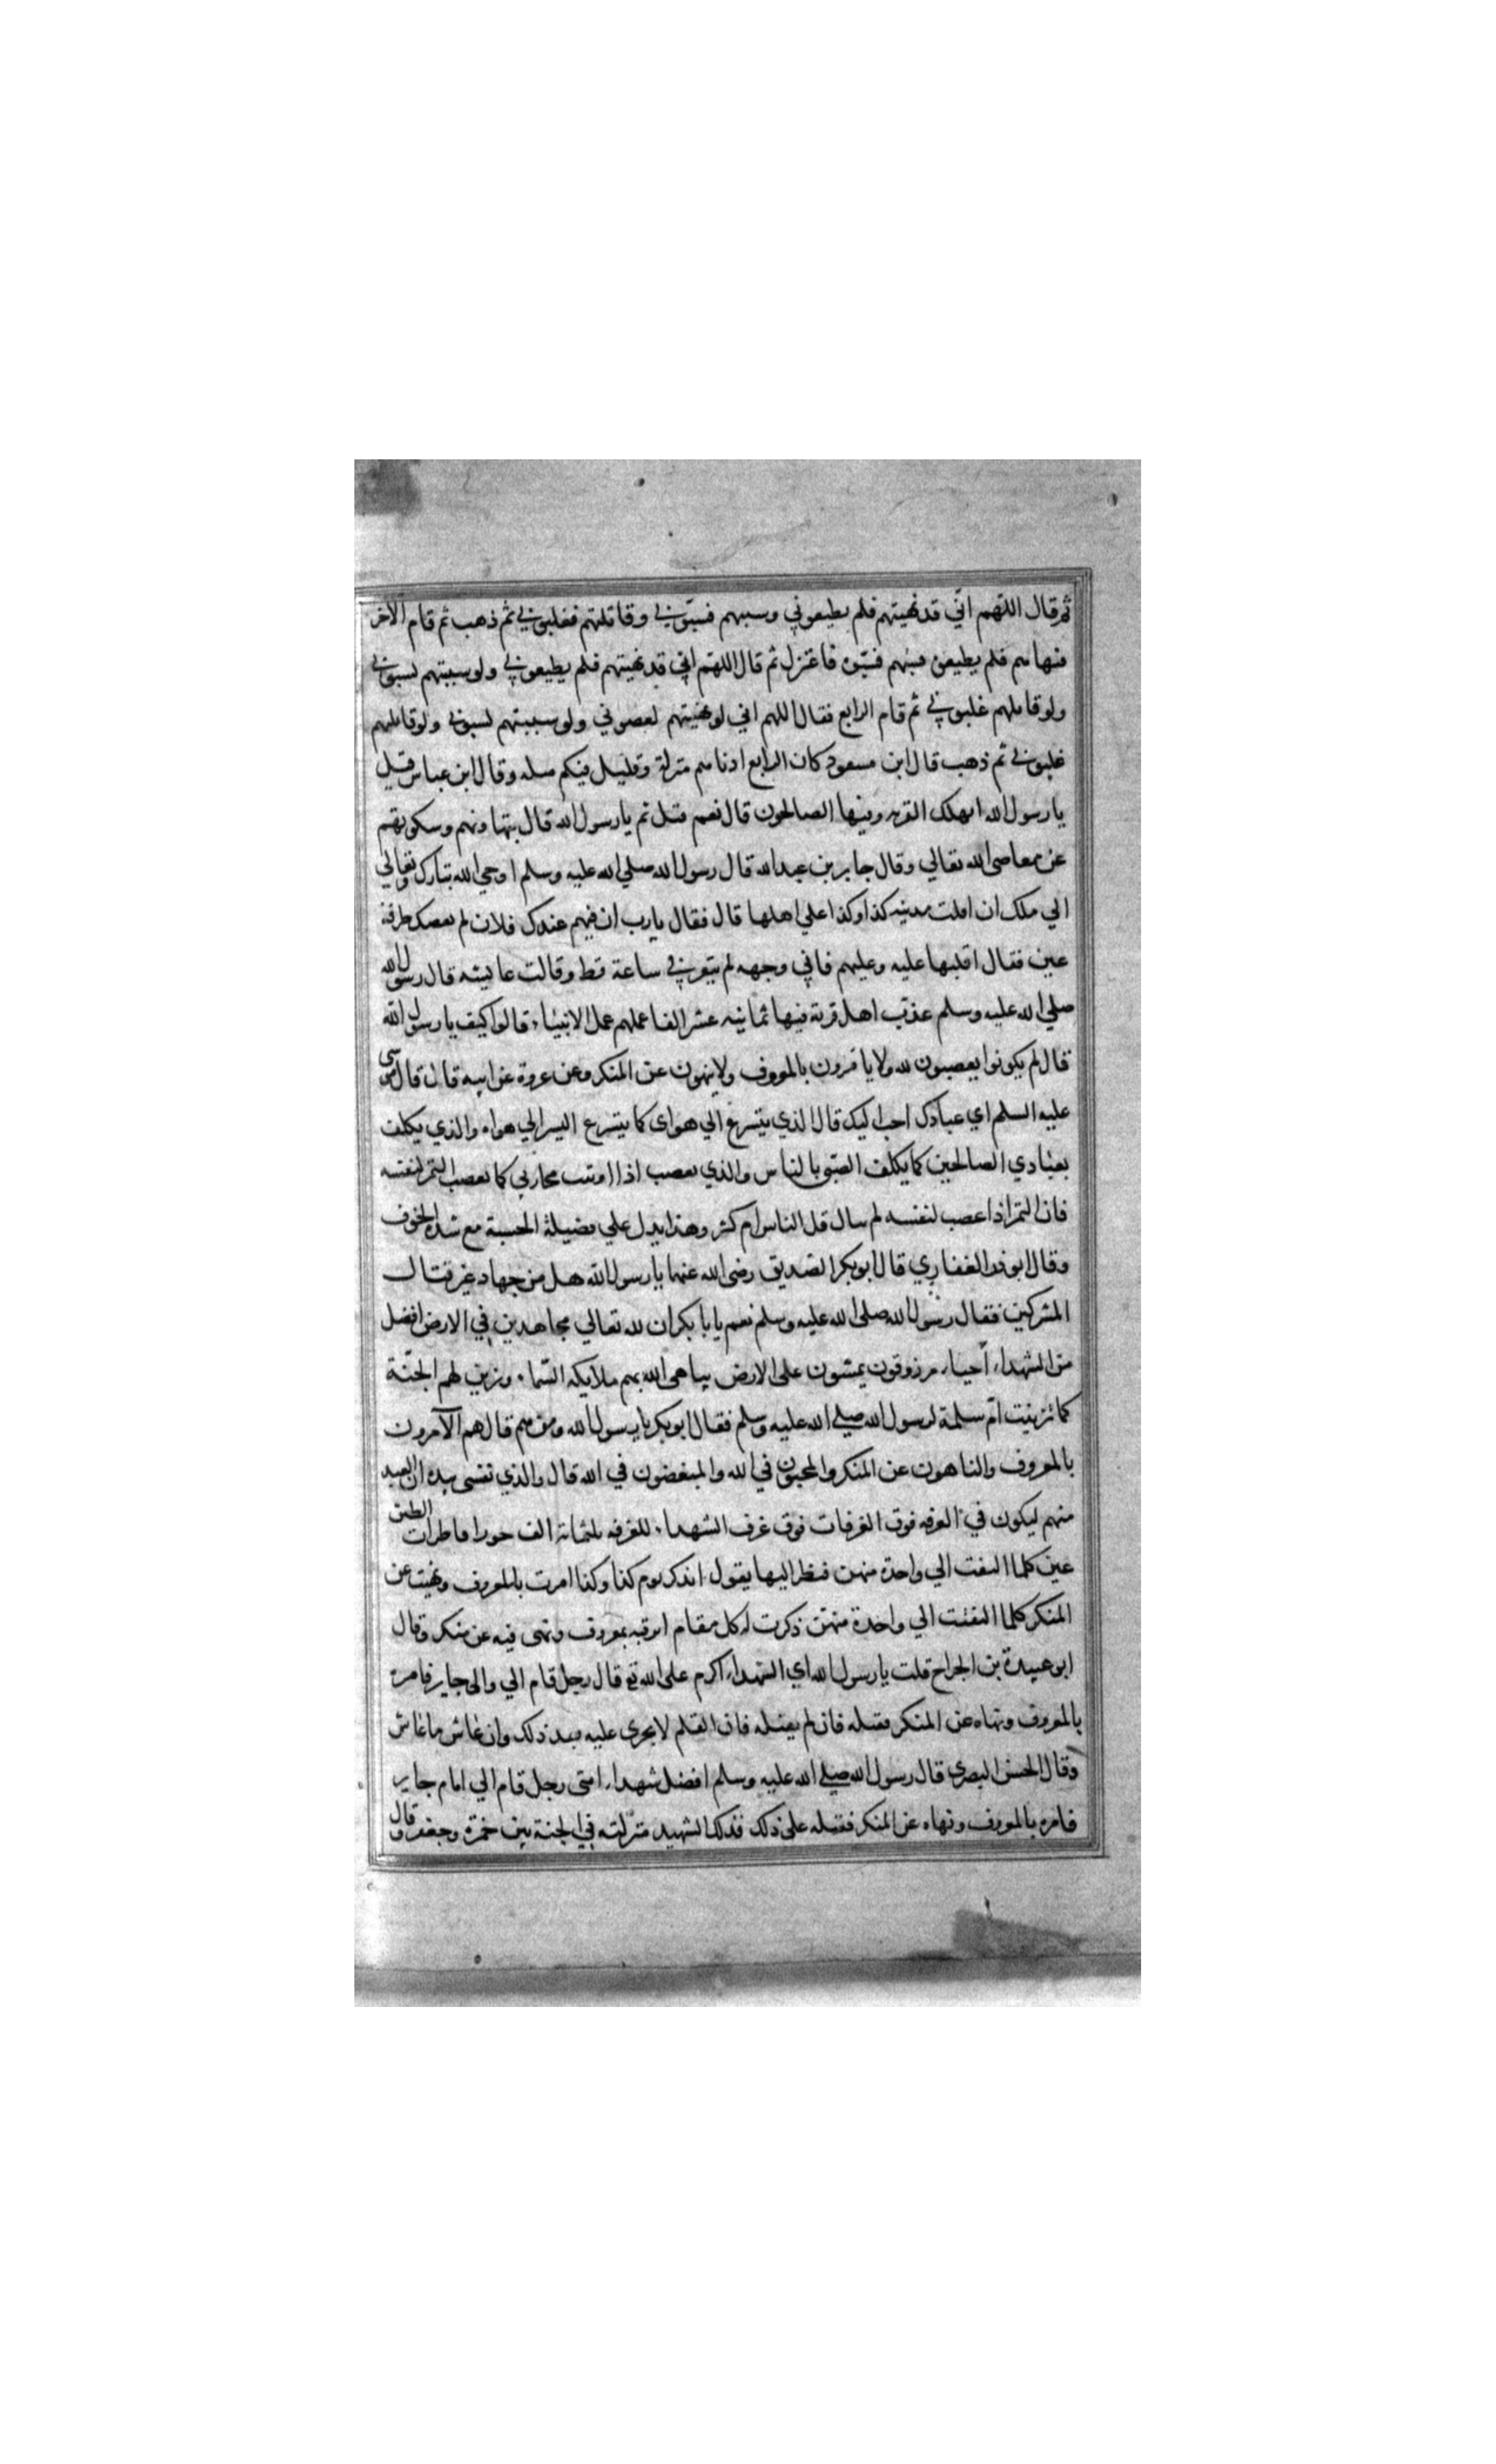 ثم قال اللهم اني قد نهيتهم فلم يطيعوني وسببتهم فسبوني وقاتلتهم فغلبوني ثم ذهب ثم قام الآخر
فنهاهم فلم يطيعوه فسبهم فسبوه فاعتزل ثم قال اللهم اني قد نهيتهم فلم يطيعوني ولو سببتهم لسبوني
ولو قاتلتهم غلبوني ثم قام الرابع فقال اللهم اني لو نهيتهم لعصوني ولو سببتهم لسبوني ولو قاتلتهم
غلبوني ثم ذهب قال ابن مسعود كان الرابع ادناهم منزلة وقليل فيكم مثله وقال ابن عباس قيل
يا رسول الله اتهلك القرية وفيها الصالحون قال نعم قيل بم يا رسول الله قال بتهاونهم وسكوتهم
عن معاصي الله تعالي وقال جابر بن عبد الله قال رسول الله صلي الله عليه وسلم اوحي الله تبارك وتعالي
الي ملك ان اقلب مدينة كذا وكذا علي اهلها قال فقال يا رب ان فيهم عبدك فلان لم يعصك طرفة
عين فقال اقلبها عليه وعليهم فاني وجهه لم يتعر في ساعة قط وقالت عايشة قال رسول الله
صلي الله عليه وسلم عذب اهل قرية فيها ثمانية عشر الفا عملهم عمل الانبياء قالوا كيف يا رسول الله
قال لم يكونوا يغضبون لله ولا يامرون بالمعروف ولا ينهون عن المنكر وعن عروة عن ابيه قال قال موسى
عليه السلم اي عبادك احب اليك قال الذي يتسرع الي هواى كما يتسرع النسر الي هواه والذي يكلف
بعبادي الصالحين كما يكلف الصبي بالناس والذي يغضب اذا اوتيت محارمي كما يغضب النمر لنفسه
فان النمر اذا غضب لنفسه لم يبال قل الناس ام كثر وهذا يدل علي فضيلة الحسبة مع شدة الخوف
وقال ابو ذر الغفاري قال ابو بكر الصديق رضى الله عنهما يا رسول الله هل من جهاد غير قتال
المشركين فقال رسول الله صلى الله عليه وسلم نعم يا با بكر ان لله تعالي مجاهدين في الارض افضل
من الشهداء أحياء مرزوقون يمشون على الارض يباهى الله بهم ملايكة السماء وتزين لهم الجنة
كما تزينت ام سلمة لرسول الله صلي الله عليه وسلم فقال ابو بكر يا رسول الله ومن هم قال هم الآمرون
بالمعروف والناهون عن المنكر والمحبون في الله والمبغضون في الله قال والذي نفسى بيده ان العبد
منهم ليكون في الغرفة فوق الغرفات فوق غرف الشهداء للغرفة ثلثماية الف حورا قاصرات الطرف
عين كلما التفت الي واحدة منهن فنظر اليها يقول اتذكر يوم كذا وكذا امرت بالمعروف ونهيت عن
المنكر كلما التفت الي واحدة منهن ذكرت له كل مقام امر فيه بمعروف ونهى فيه عن منكر وقال
ابو عبيدة بن الجراح قلت يا رسول الله اي الشهداء اكرم على الله تع قال رجل قام الي والى جاير فامره
بالمعروف ونهاه عن المنكر فقتله فان لم يقتله فان القلم لا يجرى عليه بعد ذلك وان عاش ما عاش
وقال الحسن البصري قال رسول الله صلي الله عليه وسلم افضل شهداء امتى رجل قام الي امام جاير
فامره بالمعروف ونهاه عن المنكر فقتله على ذلك فذلك الشهيد منزلته في الجنة بين حمزة وجعفر وقال